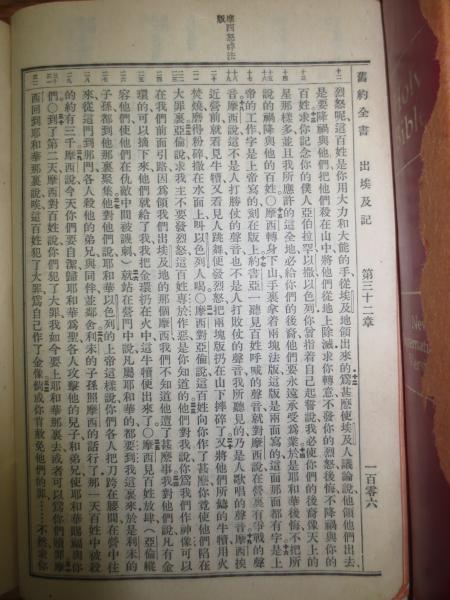 舊約全書 出埃及記 第三十二章 一百零六
烈怒呢這百姓是你用大力和大能的手從埃及地領出來的爲甚麽使埃及人議論說他領他們出去
是要降禍與他們把他們殺在山中將他們從地上除滅求你轉意不發你的烈怒後悔不降禍與你的
百姓求你記念你的僕人亞伯拉罕以撒以色列你曾指着自己起誓說我必使你們的後裔像天上的
星那樣多並且我所應許的這全地必給你們的後裔他們要永遠承受爲業於是耶和華後悔不把所
說的禍降與他的百姓〇摩西轉身下山手裏拿着兩塊法版這版是兩面寫的這面那面都有字是上
帝的工作字是上帝寫的刻在版上約書亞一聽見百姓呼喊的聲音就對摩西說在營裏有爭戰的聲
音摩西說這不是人打勝仗的聲音也不是人打敗仗的聲音我所聽見的乃是人歌唱的聲音摩西挨
近營前就看見牛犢又看見人跳舞便發烈怒把兩塊版扔在山下摔碎了又將他們所鑄的牛犢用火
焚燒磨得粉碎撒在水面上叫以色列人喝〇摩西對亞倫說這百姓向你作了甚麽你竟使他們陷在
大罪裏亞倫說求我主不要發烈怒這百姓專於作惡是你知道的他們對我說你爲我們作神像可以
在我們前面引路因爲領我們出埃及地的那個摩西我們不知道他遭了甚麽事我對他們說凡有金
環的可以摘下來他們就給了我我把金環扔在火中這牛犢便出來了〇摩西見百姓放肆（亞倫縱
容他們使他們在仇敵中間被譏刺）就站在營門中說凡屬耶和華的都要到我這裏來於是利未的
子孫都到他那裏聚集他對他們說耶和華以色列的上帝這樣說你們各人把刀跨在腰間在營中往
來從這門到那門各人殺他的弟兄與同伴並鄰舍利未的子孫照摩西的話行了那一天百姓中被殺
的約有三千摩西說今天你們要自潔歸耶和華爲聖各人攻擊他的兒子和弟兄使耶和華賜福與你
們〇到了第二天摩西對百姓說你們犯了大罪我如今要上耶和華那裏去或者可以爲你們贖罪摩
西回到耶和華那裏說唉這百姓犯了大罪爲自己作了金像倘或你肯赦免他們的罪……不然求你
摩西怒碎法版